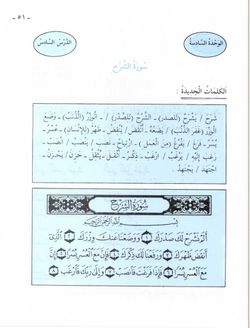 - ٥١ -
الوَحْدَةُ السَّادِسَةُ
الدَّرْسُ السَّادِسُ
سُورَةُ الشَّرْحِ
الكَلِمَاتُ الْجَدِيدَةُ :
شَرَحَ / يَشْرَحُ (للصدر) - الشَّرْحُ (للصَّدْرِ) / - الْوِزْرُ (الذَّنْبُ) - وَضَعَ
الْوِزْرَ / يَضَعُهُ - أَنْقَضَ / يُنْقِضُ - ظَهْرٌ (لِلإِنْسَانِ) - عُسْرٌ -
يُسْرٌ - فَرَغَ / يَفْرُغُ (مِنَ الْعَمَلِ) - ارْتِيَاحٌ - نَصِبَ / يَنْصَبُ -
رَغِبَ إِلَيْهِ / يَرْغَبُ - أَثْقَلَ / يُثْقِلُ - حَزِنَ / يَحْزَنُ -
اجْتَهَدَ / يَجْتَهِدُ .
سُورَةُ الشَّرْحِ
بِسْمِ اللَّهِ الرَّحْمَٰنِ الرَّحِيمِ
أَلَمْ نَشْرَحْ لَكَ صَدْرَكَ ١ وَوَضَعْنَا عَنْكَ وِزْرَكَ ٢ الَّذِي
أَنْقَضَ ظَهْرَكَ ٣ وَرَفَعْنَا لَكَ ذِكْرَكَ ٤ فَإِنَّ مَعَ الْعُسْرِ يُسْرًا ٥ إِنَّ
مَعَ الْعُسْرِ يُسْرًا ٦ فَإِذَا فَرَغْتَ فَانْصَبْ ٧ وَإِلَىٰ رَبِّكَ فَارْغَبْ ٨